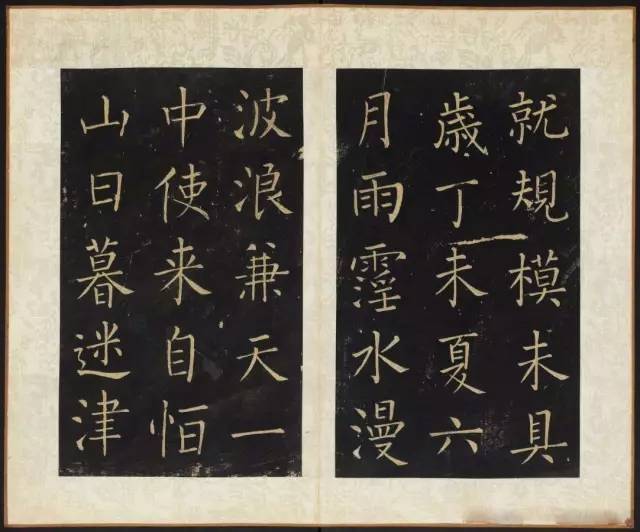 就規模未具
歳丁未夏六
月雨霪水漫
波浪兼天一
中使来自恒
山日暮迷津